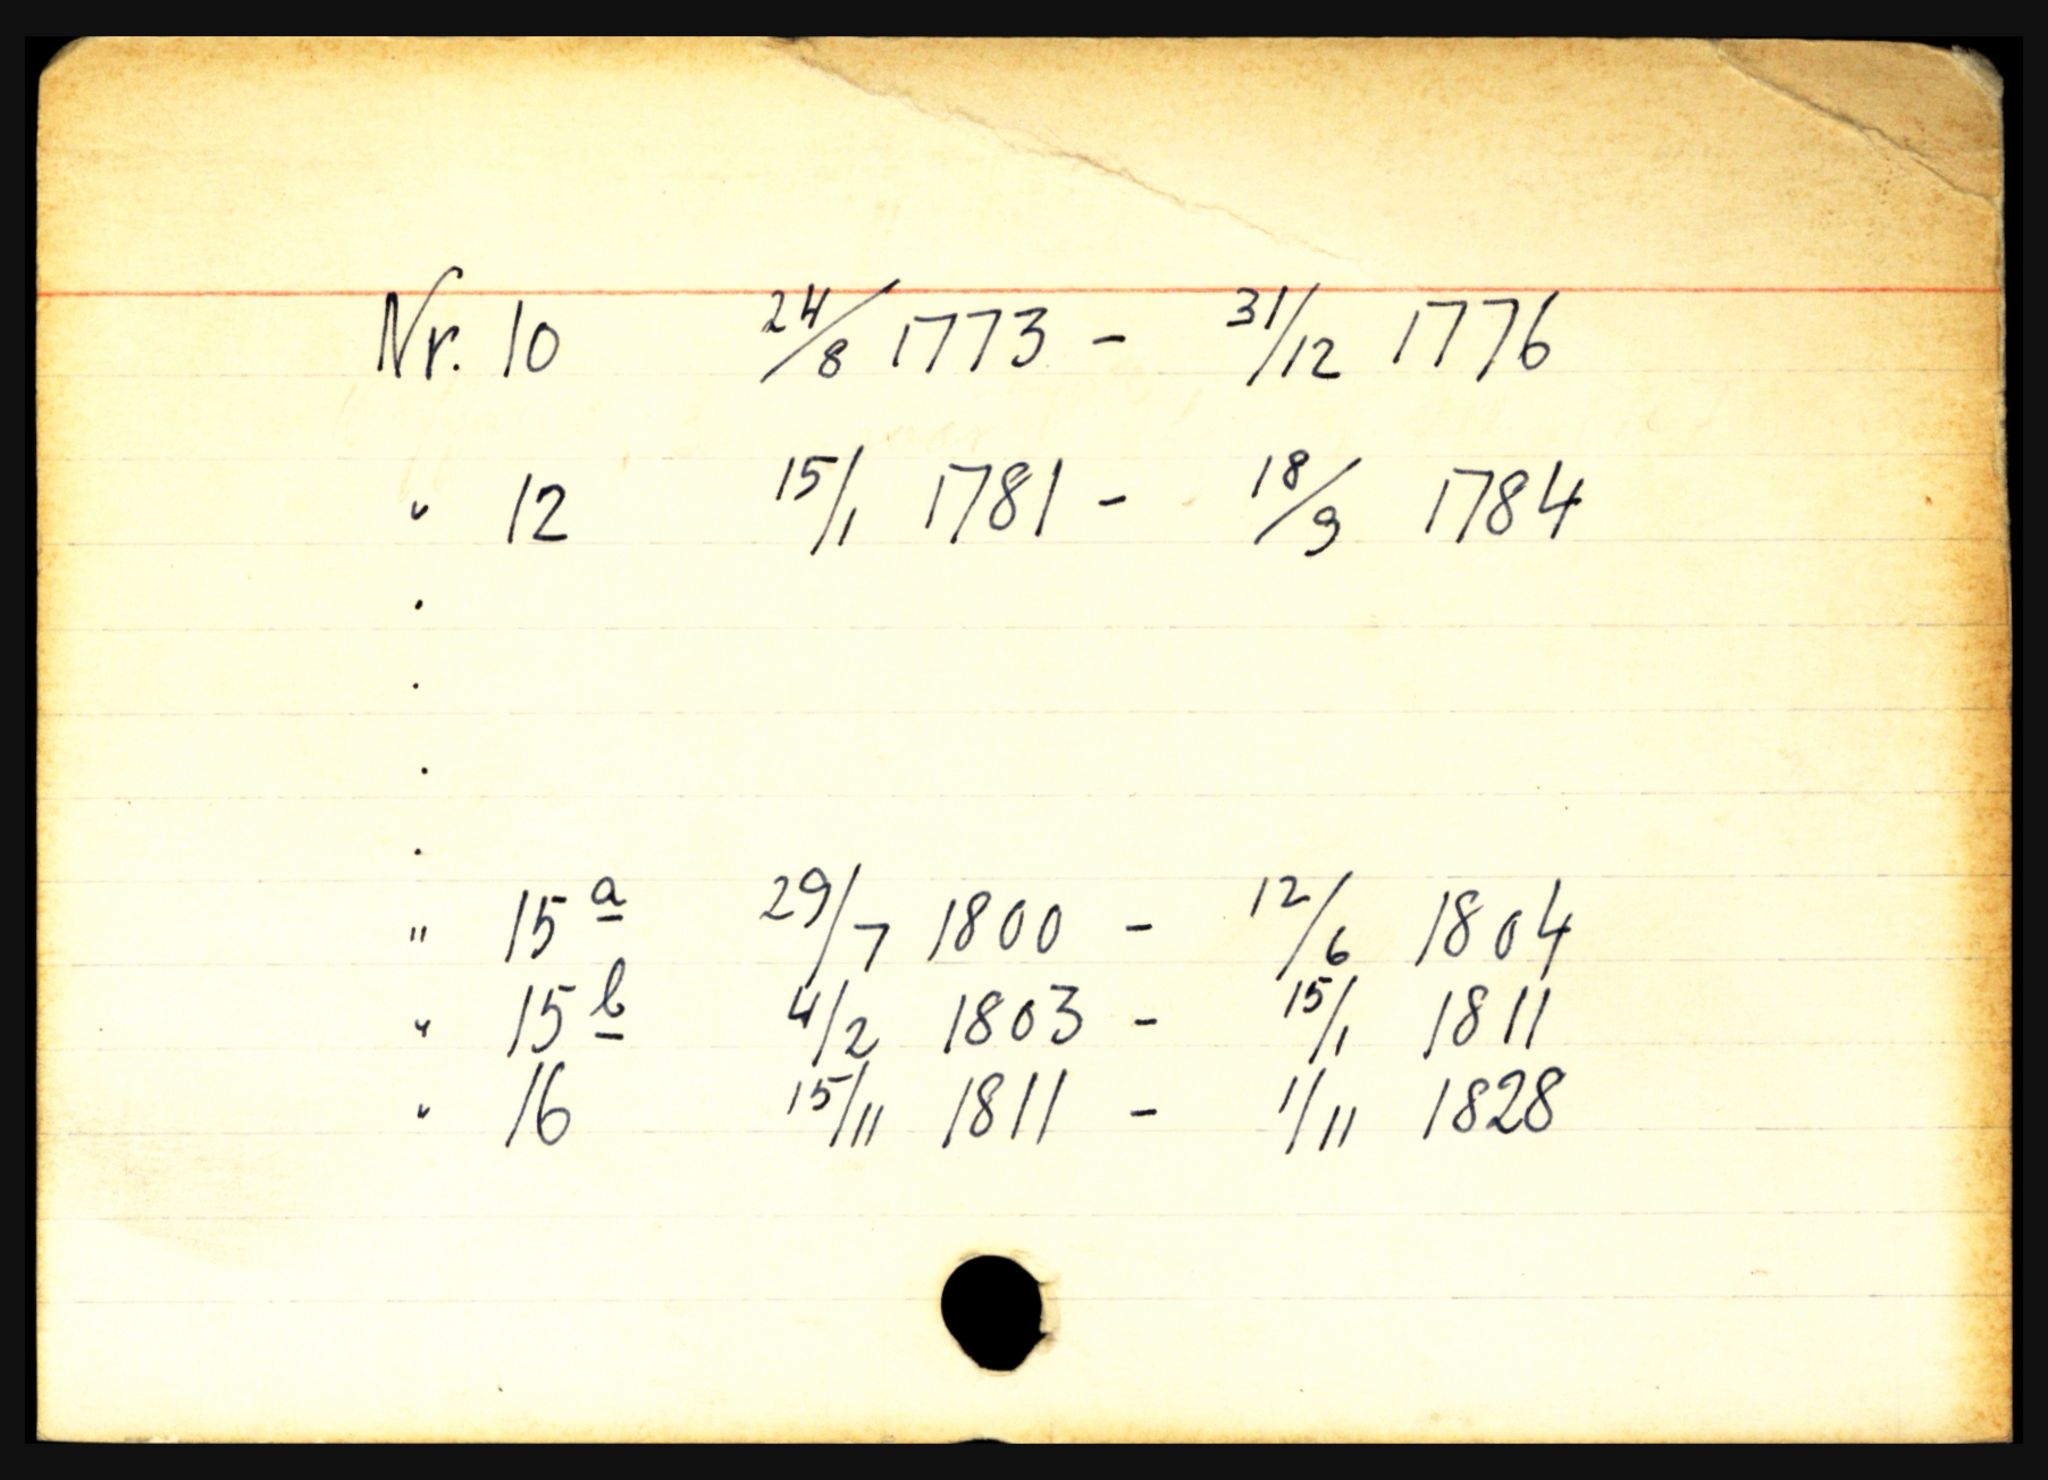 Nr. 10 24/8 1773 - 31/12 1776
" 12 15/1 1781 - 18/9 1784
.
.
.
.
" 15a 29/7 1800 - 12/6 1804
" 15b 4/2 1803 - 15/1 1811
" 16 15/11 1811 - 1/11 1828